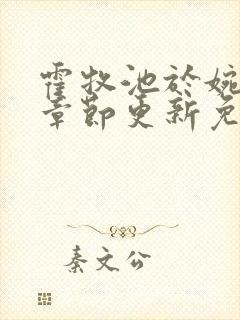 霍牧池於婉
章節更新免
秦文公